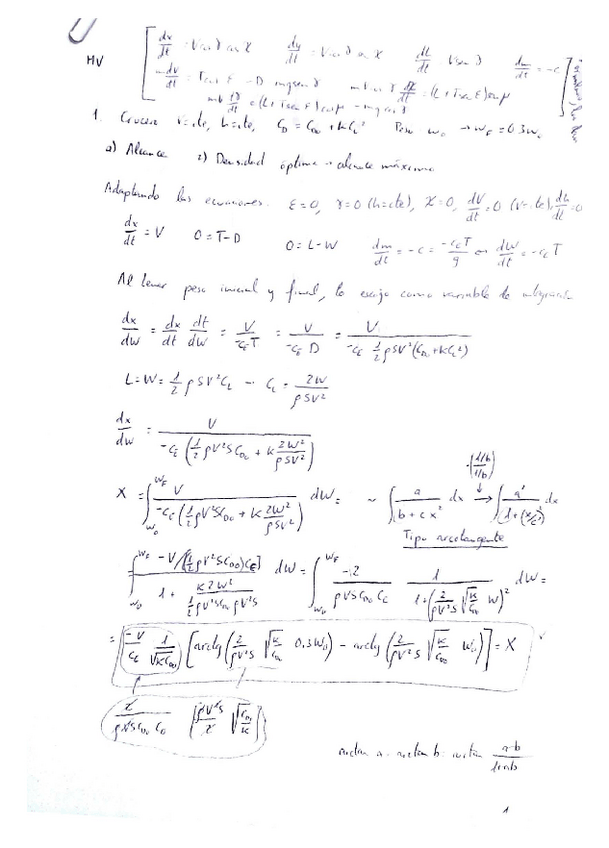 MV
dx/dt = V cos γ cos χ   dy/dt = V cos γ sen χ   dh/dt = V sen γ   dm/dt = -c
m dV/dt = T cos ε - D - mg sen γ   mV cos γ dχ/dt = (L + T sen ε) sen μ
mV dγ/dt = (L + T sen ε) cos μ - mg cos γ
1. Crucero V=cte, h=cte, C_D = C_D0 + kC_L²   Peso W_0 → W_F = 0.3W_0
1) Alcance   2) Densidad óptima → alcance máximo
Adaptando las ecuaciones: ε=0, γ=0 (h=cte), χ=0, dV/dt=0 (V=cte), dh/dt=0
dx/dt = V   0 = T-D   0 = L-W   dm/dt = -c = -c_E T/g   dW/dt = -c_E T
Al tener peso inicial y final, lo escojo como variable de integración
dx/dW = dx/dt dt/dW = V/(-c_E T) = V/(-c_E D) = V/(-c_E 1/2 ρSV²(C_D0 + kC_L²))
L=W= 1/2 ρSV²C_L → C_L = 2W/(ρSV²)
dx/dW = V/(-c_E (1/2 ρV²S C_D0 + k 2W²/(ρSV²)))
X = ∫_{W_0}^{W_F} V/(-c_E (1/2 ρV²S C_D0 + k 2W²/(ρSV²))) dW = ~ ∫ a/(b + cx²) dx → ∫ a'/(1+(x/c')²) dx
·(1/b / 1/b)
Tipo arcotangente
∫_{W_0}^{W_F} (-V/(1/2 ρV²S C_D0) c_E)/(1 + k2W²/(1/2 ρV²S C_D0 ρV²S)) dW = ∫_{W_0}^{W_F} -2/(ρVS C_D0 c_E) 1/(1+(2/(ρV²S) √(k/C_D0) W)²) dW =
= -V/c_E 1/√(kC_D0) [arctg(2/(ρV²S) √(k/C_D0) 0.3W_0) - arctg(2/(ρV²S) √(k/C_D0) W_0)] = X
2/(ρVS C_D0 c_E) [ρV²S/2 √(C_D0/k)]
arctan a - arctan b = arctan (a-b)/(1+ab)
1